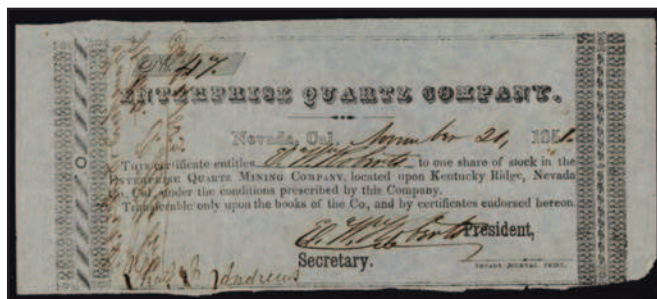 No 47.
ENTERPRISE QUARTZ COMPANY.
Nevada, Cal. November 21, 1851.
This certificate entitles to one share of stock in the
Enterprise Quartz Mining Company, located upon Kentucky Ridge, Nevada
Co. Cal. under the conditions prescribed by this Company.
Transferable only upon the books of the Co., and by certificates endorsed hereon.
President,
Secretary.
NEVADA JOURNAL PRINT.
Andrews